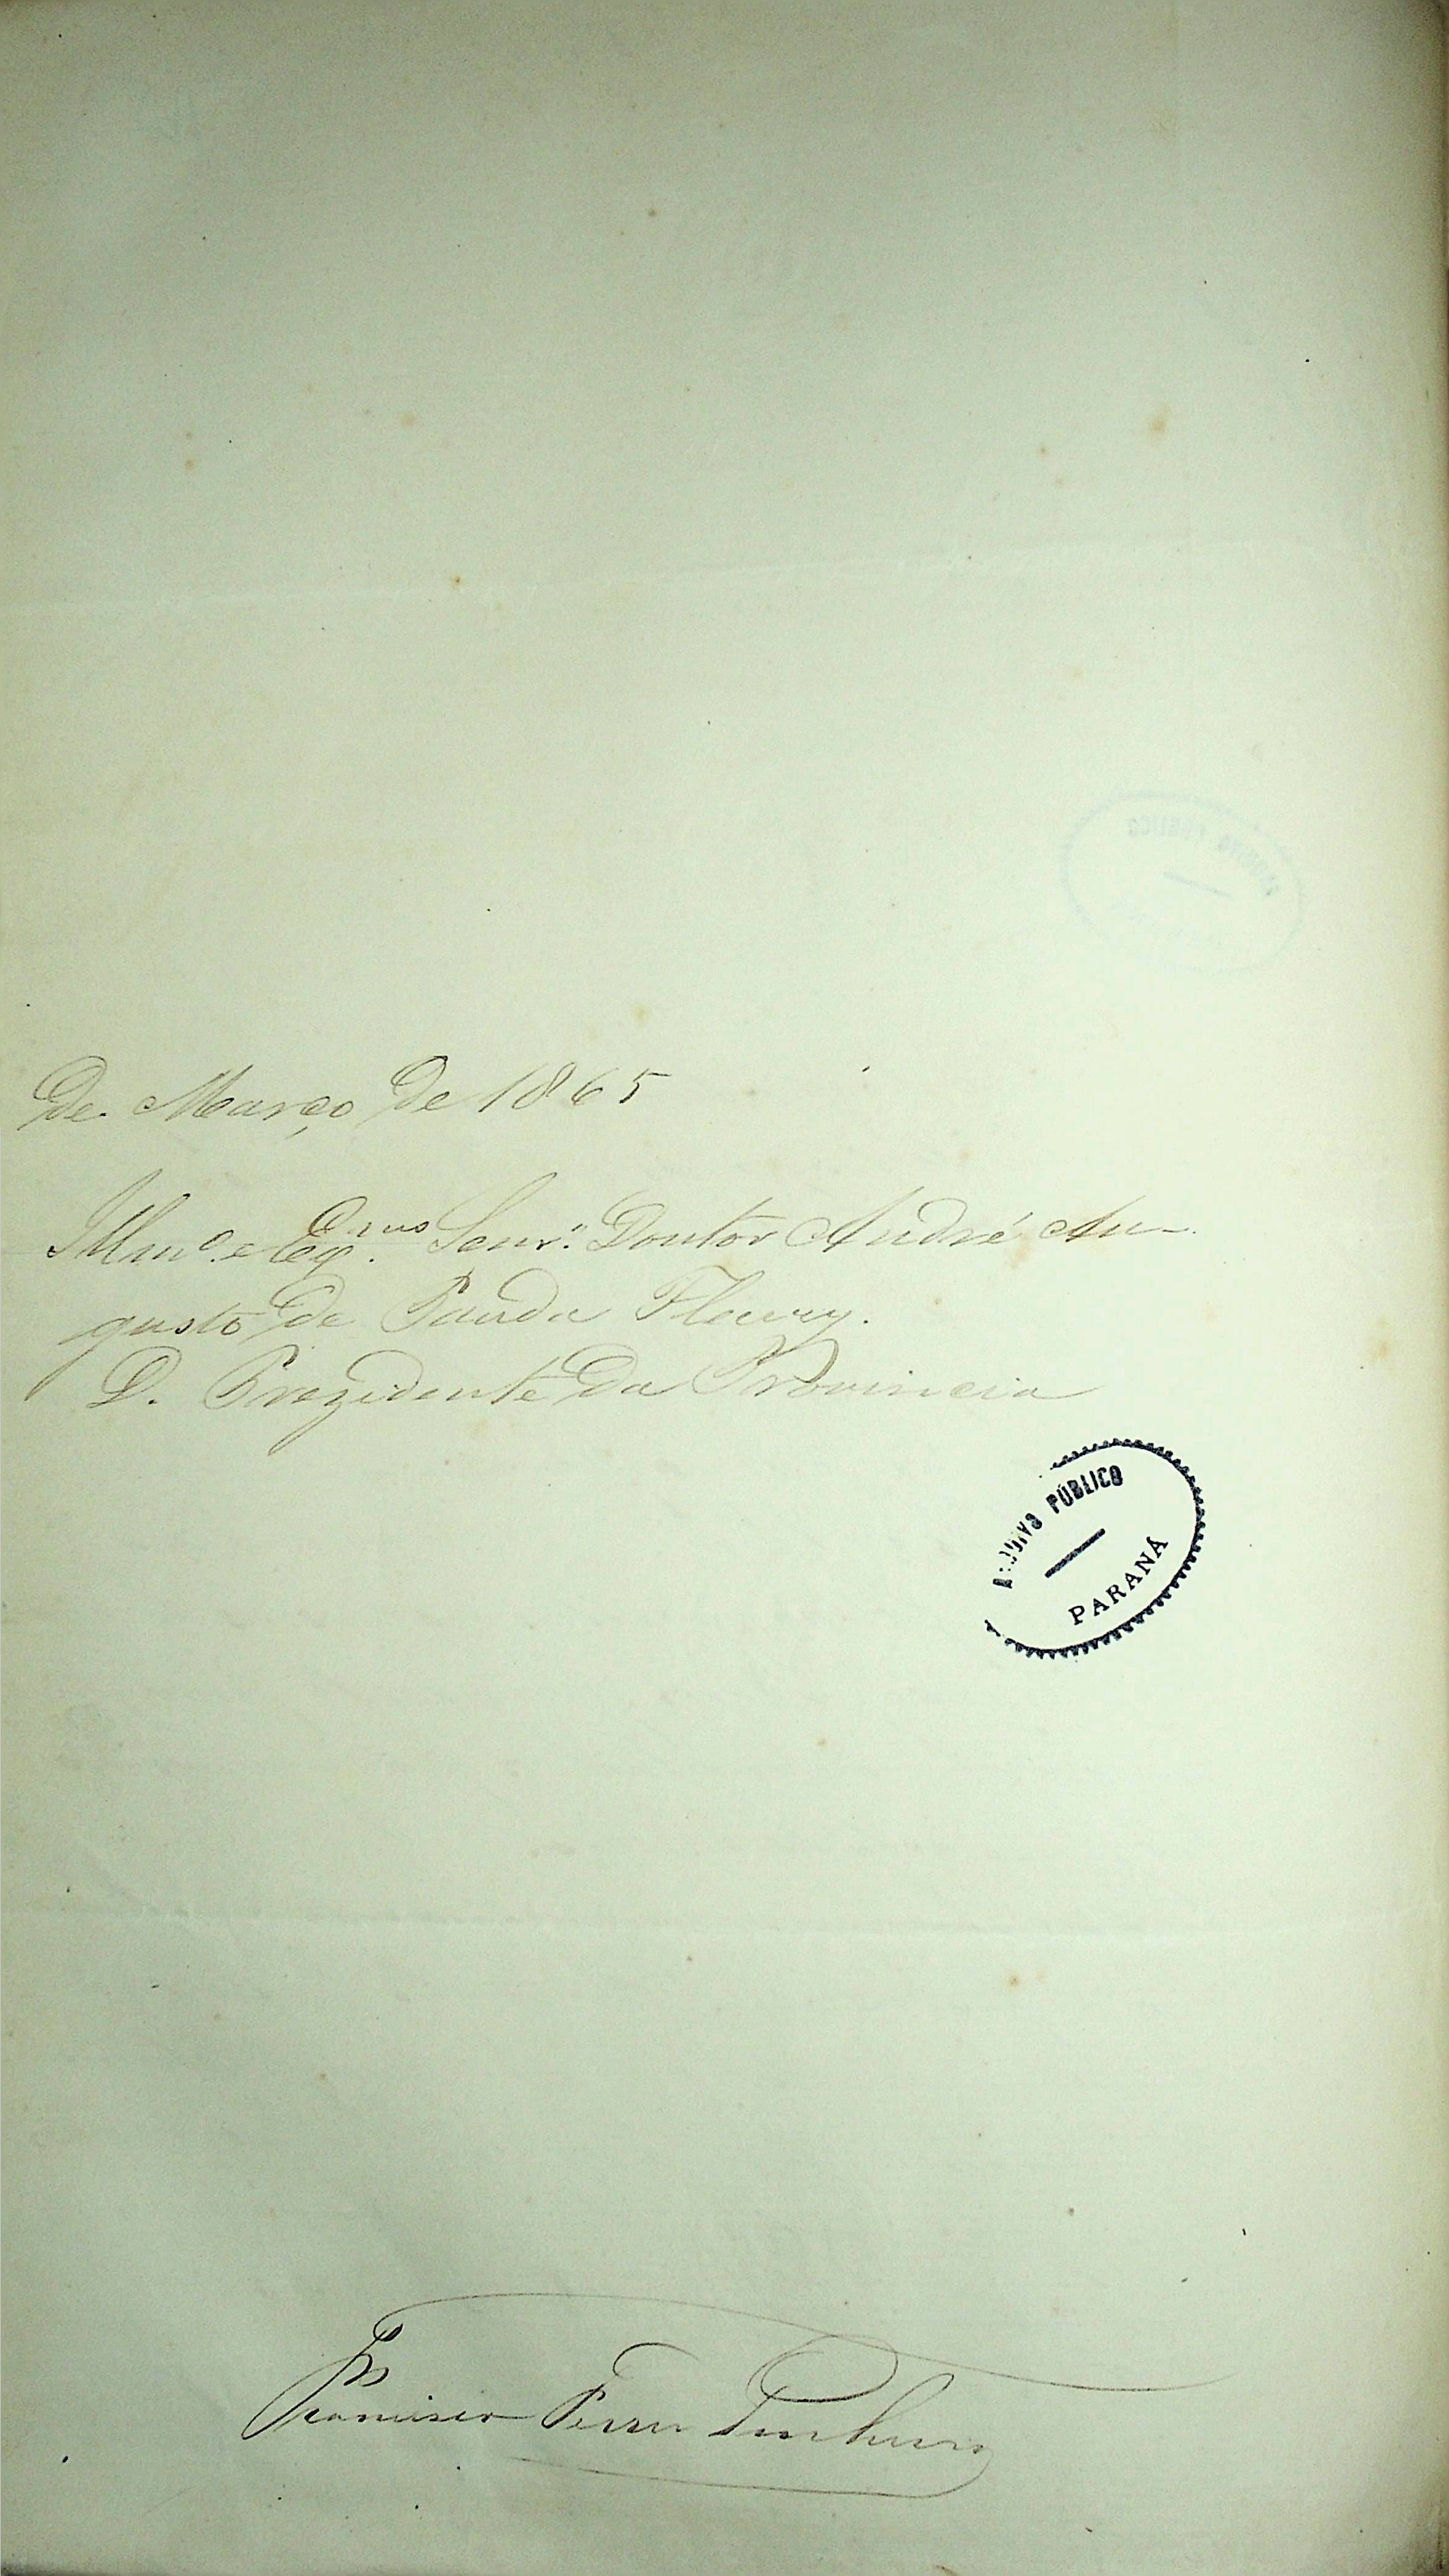 de Março de 1865
Illmo. e Exmo. Senr. Doutor André Au-
gusto de Padua Fleury.
D. Prezidente da Provincia
ARQUIVO PÚBLICO
PARANÁ
Francisco